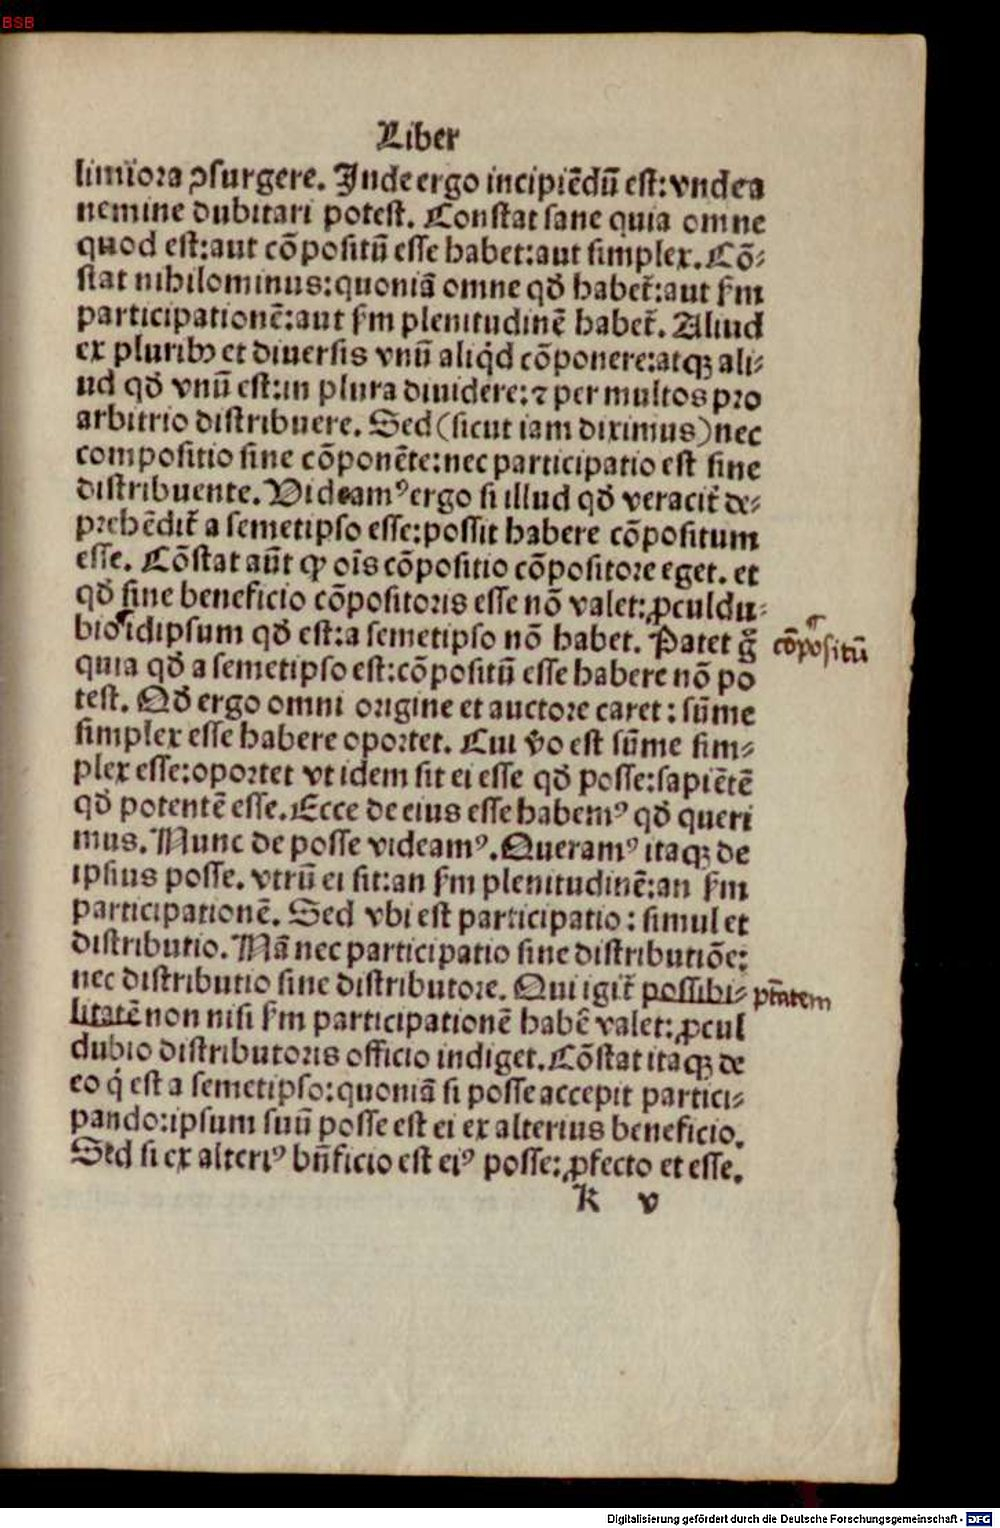 BSB
Liber
limiora ꝯsurgere. Inde ergo incipiēdū est: vnde a
nemine dubitari potest. Constat sane quia omne
quod est: aut cōpositū esse habet: aut simplex. Cō⸗
stat nihilominus: quoniā omne qđ habet᷑: aut ẜm
participationē: aut ẜm plenitudinē habet᷑. Aliud
ex pluribꝰ et diuersis vnū aliqͥd cōponere: atqꝫ ali⸗
ud qđ vnū est: in plura diuidere: ⁊ per multos pro
arbitrio distribuere. Sed (sicut iam diximus) nec
compositio sine cōponēte: nec participatio est sine
distribuente. Videamꝰ ergo si illud qđ veracit᷑ de⸗
prehēdit᷑ a semetipso esse: possit habere cōpositum
esse. Cōstat aūt ꝙ oīs cōpositio cōpositore eget. et
qđ sine beneficio cōpositoris esse nō valet: ꝓculdu⸗
bio idipsum qđ est: a semetipso nō habet. Patet g̃
cōpositū
quia qđ a semetipso est: cōpositū esse habere nō po
test. Qđ ergo omni origine et auctore caret: sūme
simplex esse habere oportet. Cui v̄o est sūme sim⸗
plex esse: oportet vt idem sit ei esse qđ posse: sapiētē
qđ potentē esse. Ecce de eius esse habemꝰ qđ queri
mus. Nunc de posse videamꝰ. Queramꝰ itaqꝫ de
ipsius posse. vtrū ei sit: an ẜm plenitudinē: an ẜm
participationē. Sed vbi est participatio: simul et
distributio. Nā nec participatio sine distributiōe:
nec distributio sine distributore. Qui igit᷑ possibi⸗
ptātem
litatē non nisi ẜm participationē habē valet: ꝓcul
dubio distributoris officio indiget. Cōstat itaqꝫ de
eo qͥ est a semetipso: quoniā si posse accepit partici⸗
pando: ipsum suū posse est ei ex alterius beneficio.
Sed si ex alteriꝰ bn̄ficio est eiꝰ posse: ꝓfecto et esse.
k v
Digitalisierung gefördert durch die Deutsche Forschungsgemeinschaft - DFG